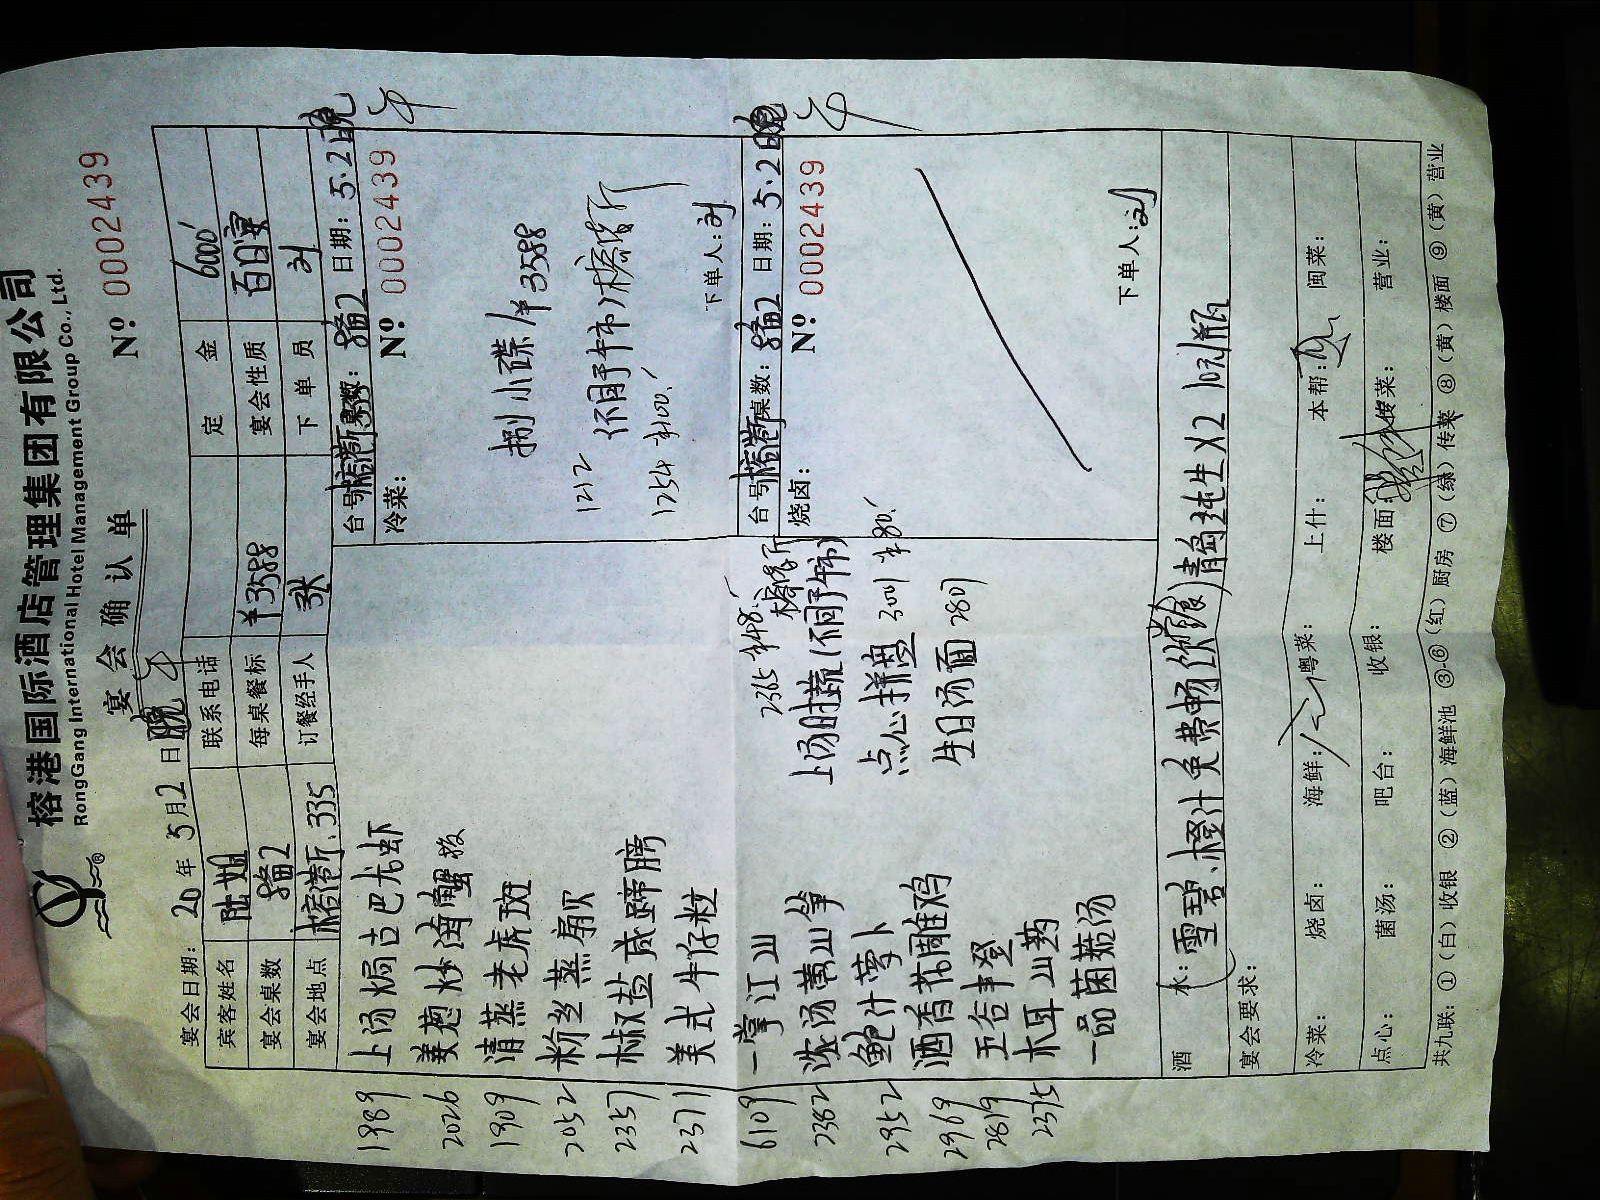 榕港国际酒店管理集团有限公司
RongGang International Hotel Management Group Co., Ltd.
宴会确认单 Nº 0002439
宴会日期: 20 年 5月2日 晚
宾客姓名 陆姐 联系电话 定金 6000
宴会桌数 每桌餐标 ¥3588 宴会性质 百日宴
宴会地点 335 订餐经手人 张 下单员 刘
1989 上汤焗古巴龙虾
2026 姜葱炒海蟹
1909 清蒸老虎斑
2052 粉丝蒸扇贝
2357 椒盐咸蹄膀
2371 美式牛仔粒
6109 一掌江山
2382 浓汤萬山笋
2952 鲍汁萝卜
2969 酒香花雕鸡
2819 五谷丰登
2375 木耳山药
一品菌菇汤
2365 ¥48
上汤时蔬(不同于午市)
点心拼盘 3001 ¥80
生日汤面 2801
台号 桌数: 日期: 5.2 晚
冷菜: Nº 0002439
捌小碟/¥3588
1212 (不同于午市)
1254 ¥100
下单人:刘
台号 桌数: 日期: 5.2 晚
烧卤: Nº 0002439
下单人:刘
酒水: 雪碧.橙汁免费畅饮 青岛纯生X2
宴会要求:
冷菜: 烧卤: 海鲜: 粤菜: 上什: 本帮: 闽菜:
点心: 菌汤: 吧台: 收银: 楼面: 传菜: 营业:
共九联: ①(白)收银 ②(蓝)海鲜池 ③-⑥(红)厨房 ⑦(绿)传菜 ⑧(黄)楼面 ⑨(黄)营业